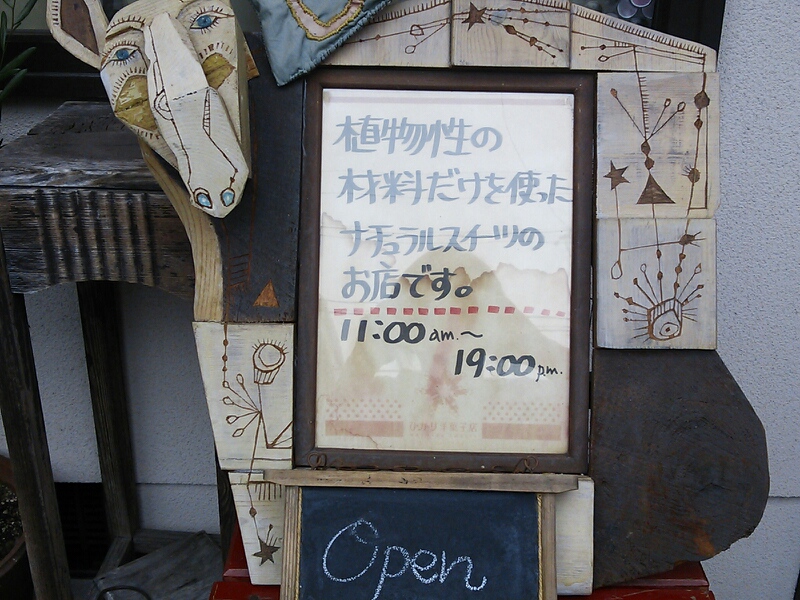 植物性の
材料だけを使った
ナチュラルスイーツの
お店です。
11:00 am.～
19:00 p.m.
Open